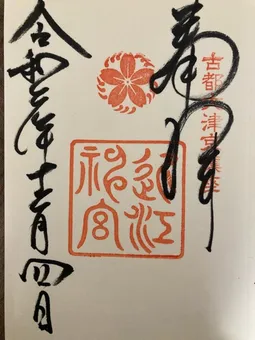 奉拝
古都大津京鎮座
近江
神宮
令和六年十二月四日